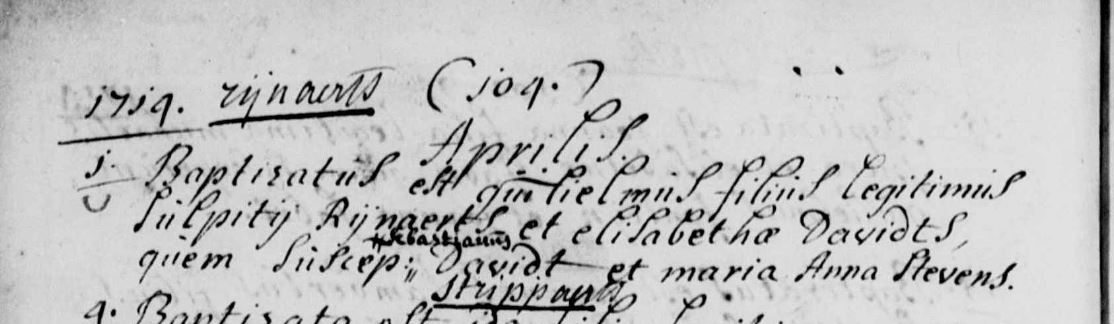 1714. rijnaerts (104.)
Aprilis.
1 Baptizatus est guilielmus filius legitimus
Sulpitij Rijnaerts et elisabethæ Davidts,
sebastianus
quem suscep: Davidt et maria Anna Stevens.
strippaerts
4. Baptizata est